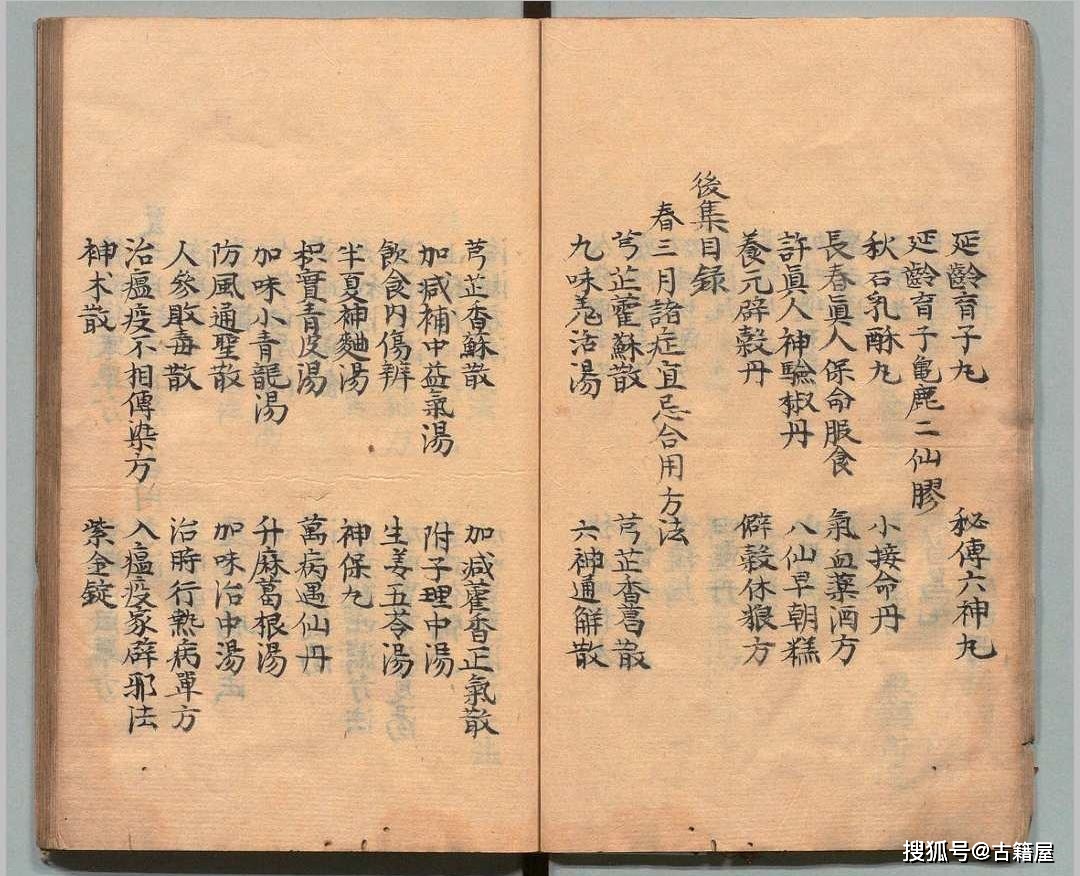 延齡育子丸 秘傳六神丸
延齡育子龜鹿二仙膠
秋石乳酥丸 小接命丹
長春眞人保命服食 氣血藥酒方
許眞人神驗椒丹 八仙早朝糕
養元辟穀丹 僻穀休粮方
後集目録
春三月諸症宜忌合用方法
芎芷藿蘇散 芎芷香葛散
九味羗活湯 六神通解散
芎芷香蘇散 加減藿香正氣散
加減補中益氣湯 附子理中湯
飲食內傷辨 生姜五苓湯
半夏神麯湯 神保丸
枳實青皮湯 萬病遇仙丹
加味小青龍湯 升麻葛根湯
防風通聖散 加味治中湯
人參敗毒散 治時行熱病單方
治瘟疫不相傳染方 入瘟疫家辟邪法
神术散 紫金錠
搜狐号@古籍屋